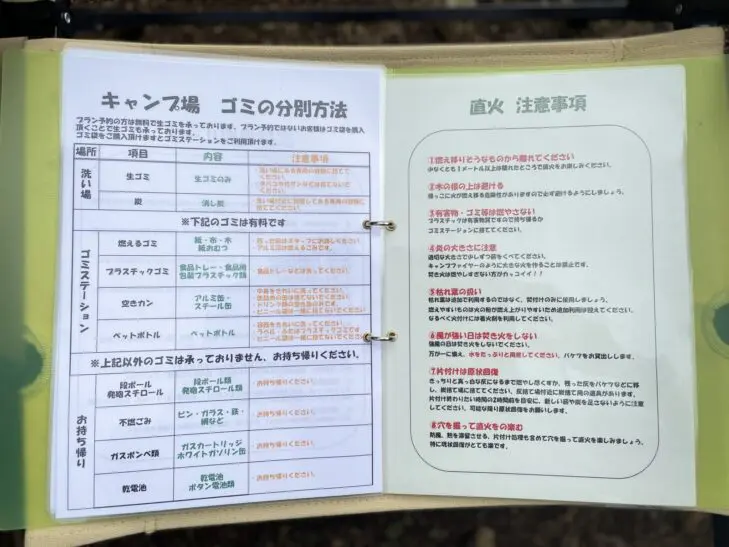 キャンプ場 ゴミの分別方法
プラン予約の方は無料で生ゴミを承っております。プラン予約ではないお客様はゴミ袋を購入
頂くことで生ゴミも承っております。
ゴミ袋をご購入頂けますとゴミステーションをご利用頂けます。
場所 項目 内容 注意事項
洗い場
生ゴミ 生ゴミのみ
炭 消し炭
※下記のゴミは有料です
ゴミステーション
燃えるゴミ 紙・布・木
紙おむつ
プラスチックゴミ 食品トレー・食品用
包装プラスチック類
空きカン アルミ缶・
スチール缶
ペットボトル ペットボトル
※上記以外のゴミは承っておりません、お持ち帰りください。
お持ち帰り
段ボール
発砲スチロール
段ボール類
発砲スチロール類
・お持ち帰りください。
不燃ごみ ビン・ガラス・鉄・
・お持ち帰りください。
ガスボンベ類 ガスカートリッジ
ホワイトガソリン缶
・お持ち帰りください。
乾電池 乾電池
ボタン電池類
・お持ち帰りください。
直火 注意事項
①燃え移りそうなものから離れてください
少なくとも1メートル以上は離れたところで直火をお楽しみください。
②木の根の上は避ける
根っこに火が燃え移る危険性がありますので必ず避けるようにしましょう。
③有害物・ゴミ等は燃やさない
プラスチックは有害物質ですので持ち帰るか
ゴミステーションに捨ててください。
④炎の大きさに注意
適切な大きさで少しずつ薪をくべてください。
キャンプファイヤーのように大きな火を作ることは禁止です。
焚き火は燃やしすぎない方がカッコイイ!!
⑤枯れ葉の扱い
枯れ葉は追加で利用するのではなく、焚付けのみに使用しましょう。
燃えやすいものは火の粉が燃え上がりやすいため追加利用は控えてください。
なるべく火付けには着火剤を利用してください。
⑥風が強い日は焚き火をしない
強風の日は焚き火をしないでください。
万が一に備え、水をたっぷりと用意してください。バケツをお貸出しします。
⑦片付けは原状回復
きっちりと真っ白な灰になるまで燃やし尽くすか、残った灰をバケツなどに移
し、炭捨て場に捨ててください。灰捨て場付近に炭捨て用の道具があります。
片付け終わりたい時間の2時間前を目安に、新しい薪や炭を足さないように注意
してください。可能な限り原状回復をお願いします。
⑧穴を掘って直火をの楽む
防風、熱を滞留させる、片付け処理も含めて穴を掘って直火を楽しみましょう。
特に現状回復がとても楽です。